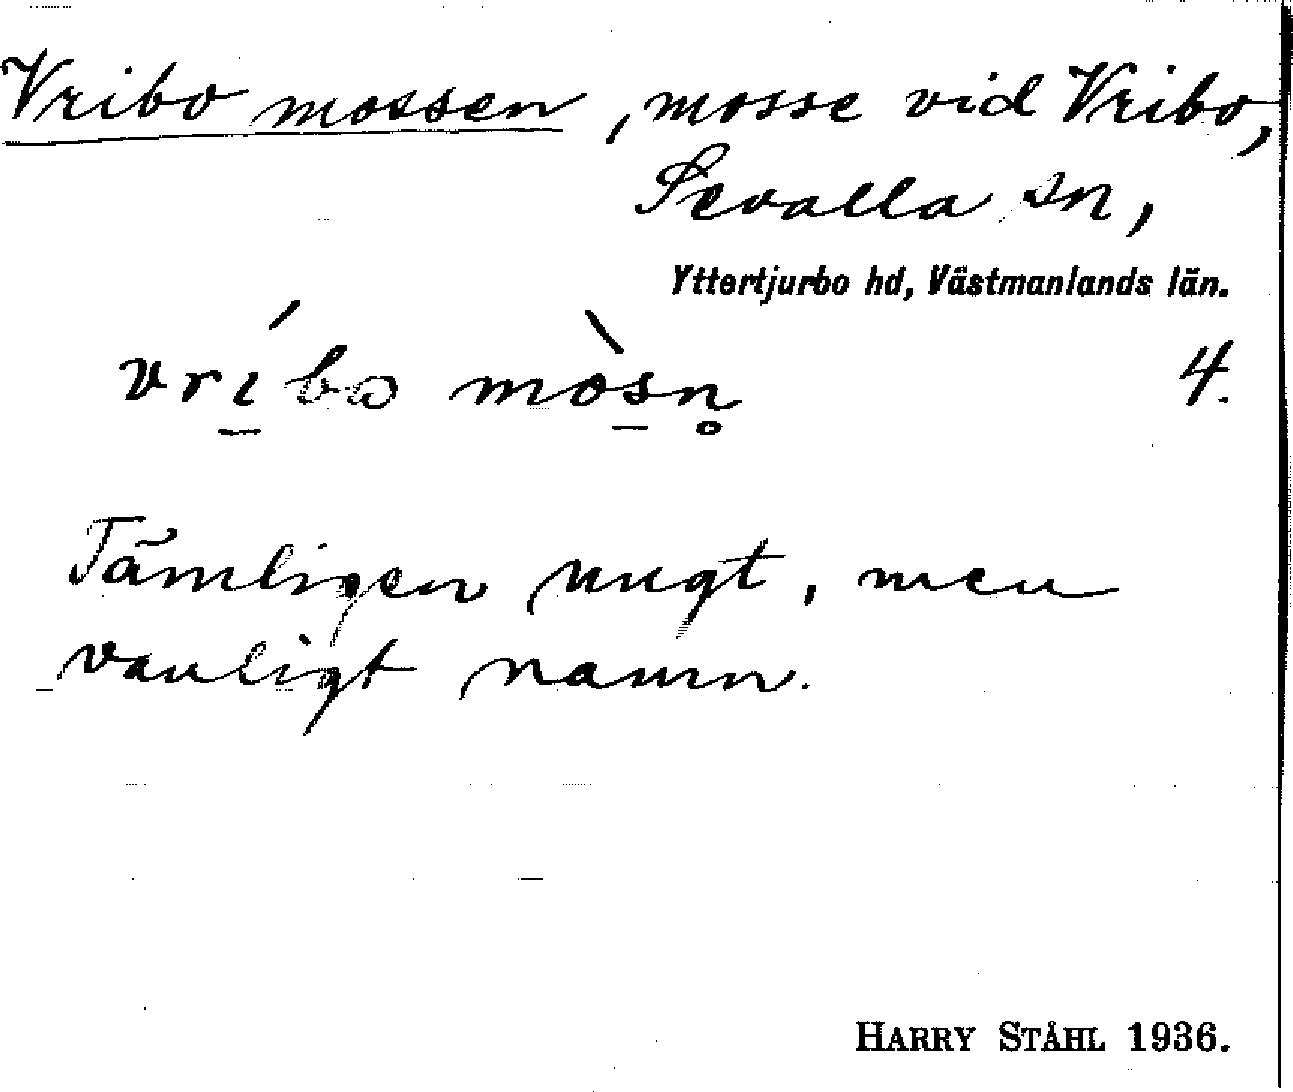 Vribo mossen, mosse vid Vribo,
Sevalla sn,
Yttertjurbo hd, Västmanlands län.
vrí̱bo mòs̱n̥ 4.
Tämligen nygt, men
vanligt namn.
HARRY STÅHL 1936.